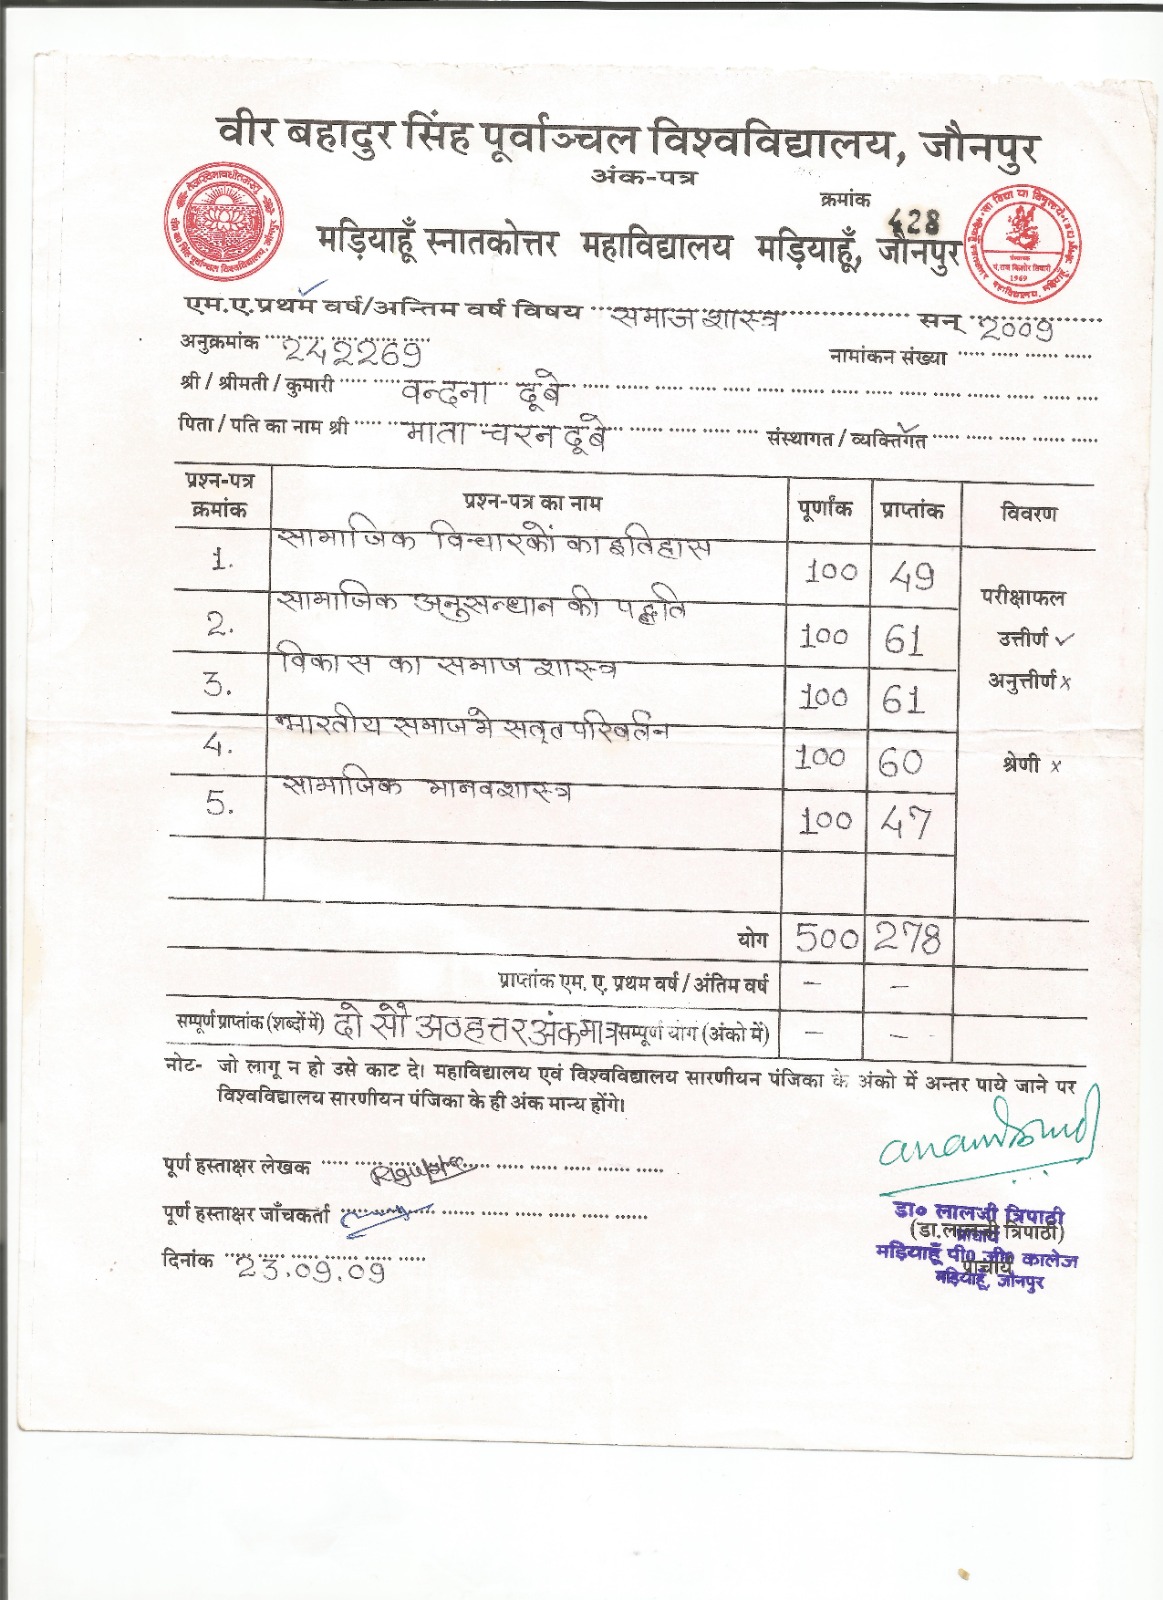 वीर बहादुर सिंह पूर्वाञ्चल विश्वविद्यालय, जौनपुर
अंक-पत्र
क्रमांक
428
मड़ियाहूँ स्नातकोत्तर महाविद्यालय मड़ियाहूँ, जौनपुर
एम.ए.प्रथम वर्ष/अन्तिम वर्ष विषय समाज शास्त्र सन् 2009
अनुक्रमांक 242269 नामांकन संख्या
श्री / श्रीमती / कुमारी वन्दना दूबे
पिता / पति का नाम श्री माता चरन दूबे संस्थागत / व्यक्तिगत
प्रश्न-पत्र क्रमांक प्रश्न-पत्र का नाम पूर्णांक प्राप्तांक विवरण
1. सामाजिक विचारकों का इतिहास 100 49
परीक्षाफल
2. सामाजिक अनुसन्धान की पद्धति 100 61 उत्तीर्ण ✓
3. विकास का समाज शास्त्र 100 61 अनुत्तीर्ण x
4. भारतीय समाज मे सतत् परिवर्तन 100 60 श्रेणी x
5. सामाजिक मानवशास्त्र 100 47
योग 500 278
प्राप्तांक एम. ए. प्रथम वर्ष / अंतिम वर्ष – –
सम्पूर्ण प्राप्तांक (शब्दों में) दो सौ अठहत्तर अंकमात्र सम्पूर्ण योग (अंको में) – –
नोट- जो लागू न हो उसे काट दे। महाविद्यालय एवं विश्वविद्यालय सारणीयन पंजिका के अंको में अन्तर पाये जाने पर
विश्वविद्यालय सारणीयन पंजिका के ही अंक मान्य होंगे।
पूर्ण हस्ताक्षर लेखक
पूर्ण हस्ताक्षर जाँचकर्ता
दिनांक 23.09.09
डा० लालजी त्रिपाठी
(डा.लालजी त्रिपाठी)
प्राचार्य
मड़ियाहूँ पी० जी० कालेज
प्राचार्य
मड़ियाहूँ, जौनपुर